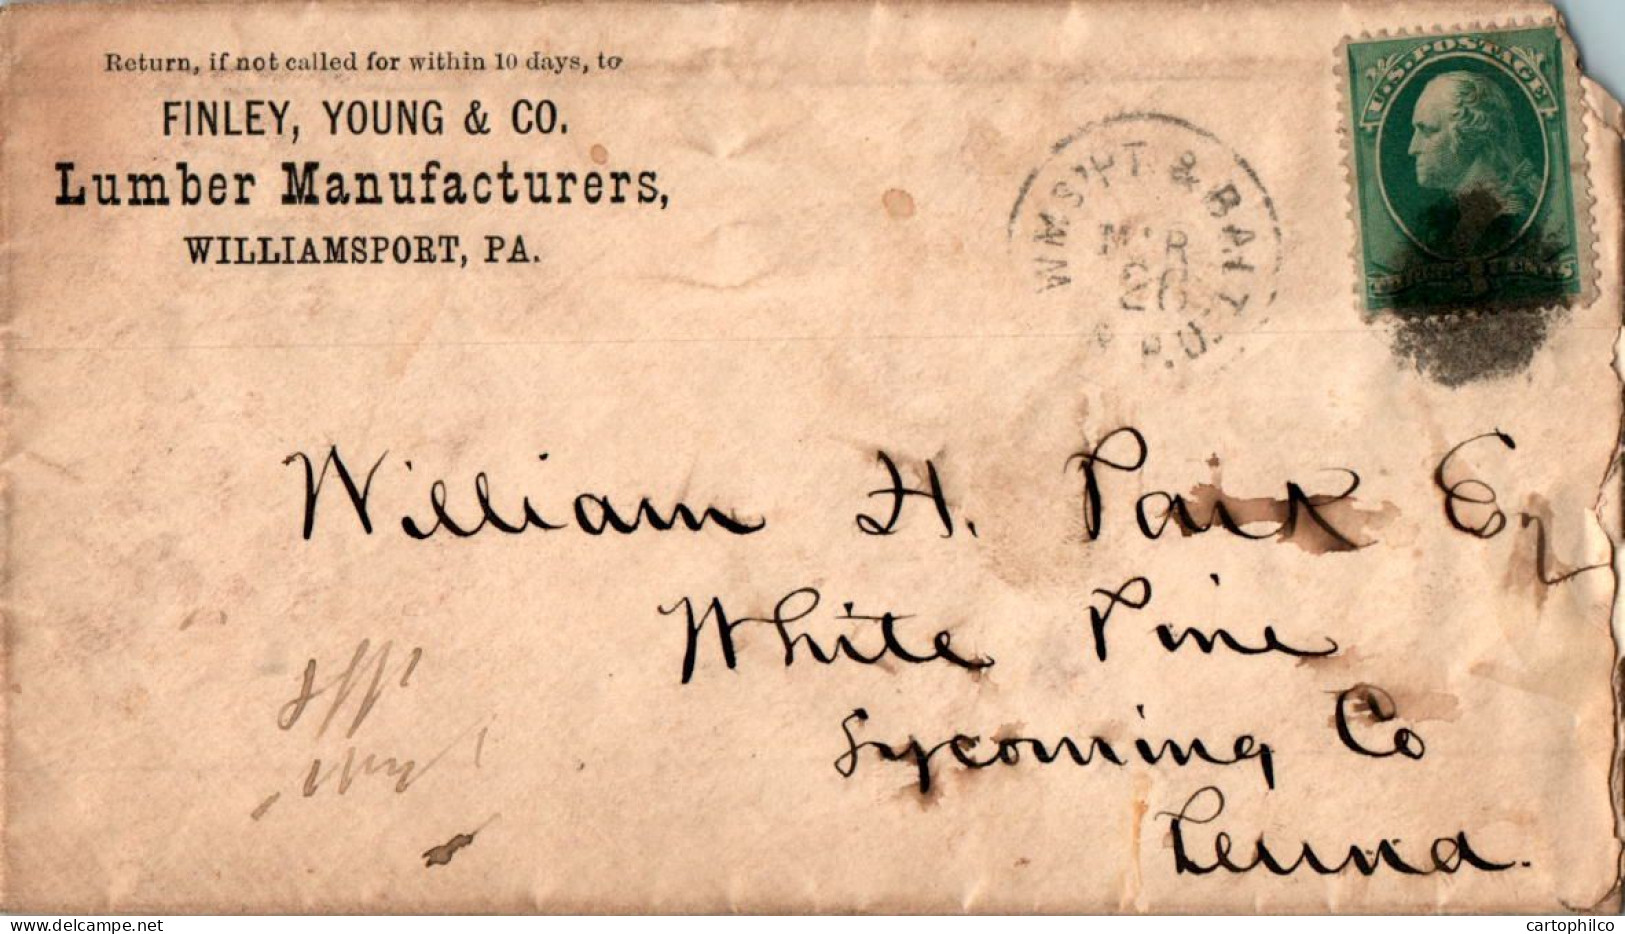 Return, if not called for within 10 days, to
FINLEY, YOUNG & CO.
Lumber Manufacturers,
WILLIAMSPORT, PA.
WMSP'T. & BALT.
MAR
26
R.P.O.
U.S. POSTAGE
THREE 3 CENTS
William H. Park Esq
White Pine
Lycoming Co
Penna.
cartophilco